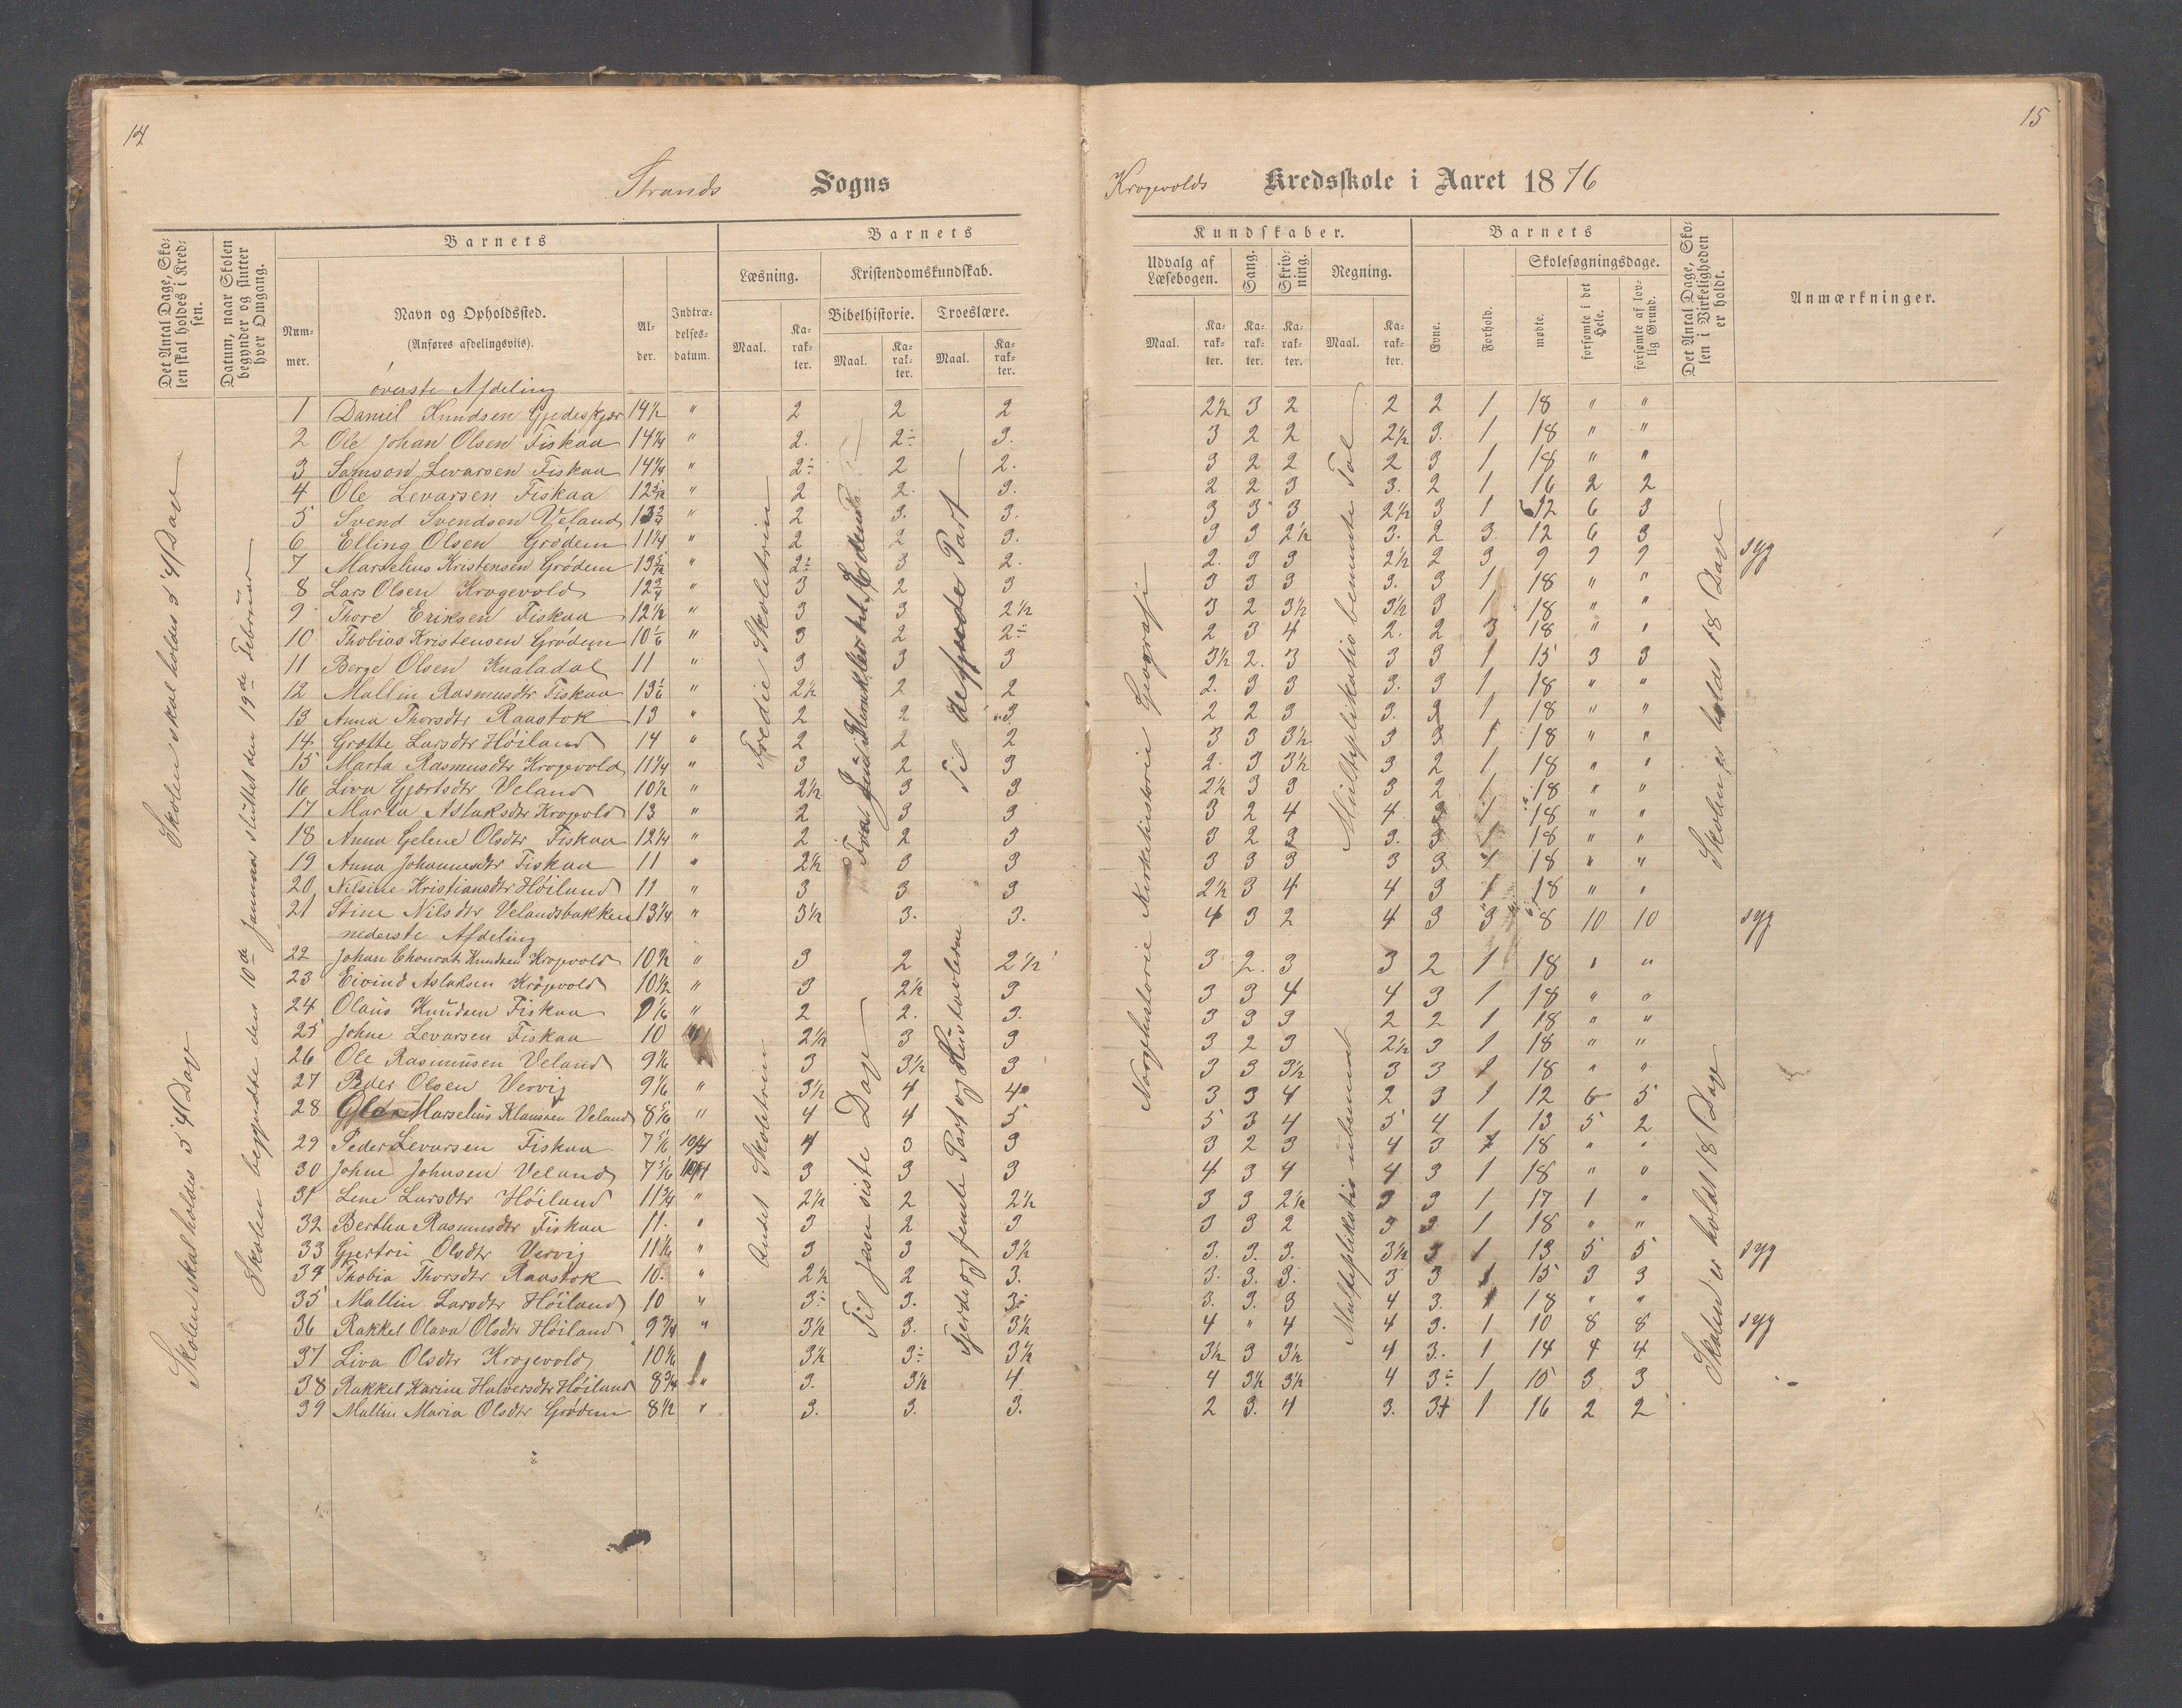 14
15
Strands Sogns
Krogevolds Kredsskole i Aaret 1876
Det Antal Dage, Skolen skal holdes i Kredsen.
Datum, naar Skolen begynder og slutter hver Omgang.
Barnets
Barnets
Kundskaber.
Barnets
Det Antal Dage, Skolen i Virkeligheden er holdt.
Anmærkninger.
Nummer.
Navn og Opholdssted.
(Anføres afdelingsviis).
Alder.
Indtrædelsesdatum.
Læsning.
Kristendomskundskab.
Bibelhistorie.
Troeslære.
Udvalg af Læsebogen.
Sang.
Skrivning.
Regning.
Evne.
Forhold.
Skolesøgningsdage.
mødte.
forsømte i det Hele.
forsømte af lovlig Grund.
Maal. Karakter. Maal. Karakter. Maal. Karakter.
Maal. Karakter. Karakter. Karakter. Maal. Karakter.
Skolen skal holdes
Skolen begyndte den 10de Januar sluttet den 19de Februar
Tredie Skoletrin
Til det fjerde Part
Norgeshistorie Kirkehistorie Geografi
Multiplikatio benævnte Tal
Skolen er holdt 18 Dage
øverste Afdeling
1 Daniel Knudsen Gjedeskjær 14½ " 2 2 2 2½ 3 2 2 2 1 18 " "
2 Ole Johan Olsen Fiskaa 14¼ " 2. 2÷ 3. 3 2 2 2½ 3. 1 18 " "
3 Samson Levarsen Fiskaa 14¼ " 2÷ 2 2. 3 2 2 2 3 1 18 " "
4 Ole Levarsen Fiskaa " 2 2. 3. 2 2 3 3. 2 1 16 2 2
5 Svend Svendsen Veland " 2 3. 3. 3 3 3 2½ 3 1 12 6 3
6 Elling Olsen Grødem 11¼ " 2 2 3. 3 3 2½ 3. 2 3 12 6 3
7 Marselius Kristensen Grødem " 2÷ 3 2. 2. 3 3 2½ 2 3 9 9 9 syg
8 Lars Olsen Krogevold " 3 2 3 3 3 3 3. 3 1 18 " "
9 Thore Eriksen Fiskaa 12½ " 3 3 2½ 3 2 3½ 3½ 3 1 18 " "
10 Thobias Kristensen Grødem 10⅙ " 3 2 2÷ 2 3 4 2. 2 3 18 " "
11 Berge Olsen Knaladal 11 " 3 3 3 3½ 2. 3 3 3 1 15 3 3
12 Mallin Rasmusdtr Fiskaa 13⅙ " 2½ 2 2 2. 3 3 3. 3 1 18 " "
13 Anna Thorsdtr Raustok 13 " 2 2 3. 2 2 3 3. 3 1 18 " "
14 Grethe Larsdtr Høiland 14 " 2 2 2 3 3 3½ 3 3 1 18 " "
15 Marta Rasmusdtr Krogevold 11¼ " 3 2 3 2. 3 3½ 3 2 1 18 " "
16 Liva Gjertsdtr Veland 10½ " 2½ 3 3 2½ 3 3 3 2 1 18 " "
17 Marta Aslaksdtr Krogevold 13 " 2 3 3 3 2 4 4 3 1 18 " "
18 Anna Gelene Olsdtr Fiskaa 12¼ " 2 2 3 3 2 3 3. 3 1 18 " "
19 Anna Johannesdtr Fiskaa 11 " 2½ 3 3 3 3 3 3 3 1 18 " "
20 Nilsine Kristiansdtr Høiland 11 " 3 3 3 2½ 3 4 4 3 1 18 " "
21 Stine Nilsdtr Velandsbakken 13¼ " 3½ 3. 3. 4 3 2 4 3 3 8 10 10 syg
nederste Afdeling
Skolen skal holdes
Andet Skoletrin
Til Jesu siste Dage
Fjerde og femte Part og Hustavlerne
Multiplikatio ubenævnt
Skolen er holdt 18 Dage
22 Johan Knudsen Krogevold 10½ " 3 2 2½ 3 2. 3 3 2 1 18 " "
23 Eivind Aslaksen Krogevold 10½ " 3 2½ 3 3 3 4 4 3 1 18 " "
24 Olaus Knudsen Fiskaa " 2 2. 3. 3 3 3 2 2 1 18 " "
25 Johne Levarsen Fiskaa 10 2½ 3 3 3 2 3 2½ 3 1 18 " "
26 Ole Rasmussen Veland 9⅙ 3 3½ 3 3 3 3½ 3 3 1 18 " "
27 Peder Olsen Vervig 9⅙ " 3½ 4 4 3 3 4 2 3 1 12 6 5
28 Marselius Klausen Veland 8⅚ " 4 4 5 5 3 4 5 4 1 13 5 2
29 Peder Levarsen Fiskaa 4 3 3 3 2 3 4 3 1 18 " "
30 Johne Johnsen Veland 3 3 3 4 3 4 4 3 1 18 " "
31 Lene Larsdtr Høiland 11¾ " 2½ 2 2½ 3 3 2½ 3 3 1 17 1 "
32 Bertha Rasmusdtr Fiskaa 11. " 3 2 3 3 3 2 3 3 1 18 " "
33 Gjertrui Olsdtr Vervig 11⅙ " 3 3 3½ 3. 3. 3. 3½ 3 1 13 5 5 syg
34 Thobia Thorsdtr Raustok 10. " 2½ 2 3. 3. 3. 3. 3 3 1 15 3 3
35 Mallin Larsdtr Høiland 10 " 3÷ 3. 3÷ 3. 3. 3 4 3. 1 18 " "
36 Rakkel Olava Olsdtr Høiland 9¾ " 3½ 3. 3½ 4 " 4 4 3. 1 10 8 8 syg
37 Liva Olsdtr Krogevold 10⅙ 3½ 3÷ 3½ 3½ 3 3½ 4 3. 1 14 4 4
38 Rakkel Karine Halversdtr Høiland 8¾ " 3. 3½ 4. 4 3½ 3½ 4 3÷ 1 15 3 3
39 Mallin Maria Olsdtr Grødem 8½ " 3. 3. 3. 2 3. 4 3. 3+ 1 16 2 2